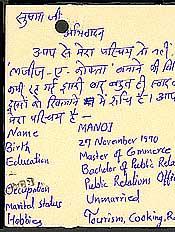 सुषमा जी
अभिवादन
आप से मेरा परिचय तो नहीं
'लजीज-ए-कोफ्ता' बनाने की वि
रही इसी बार बहुत ही स्वाद
दूसरों को खिलाने में रुचि है। आप
मेरा परिचय है —
Name MANOJ
Birth 27 November 1970
Education - Master of Commerce
Bachelor of Public Relat
Occupation Public Relations Offi
Marital status Unmarried
Hobbies Tourism, Cooking, R